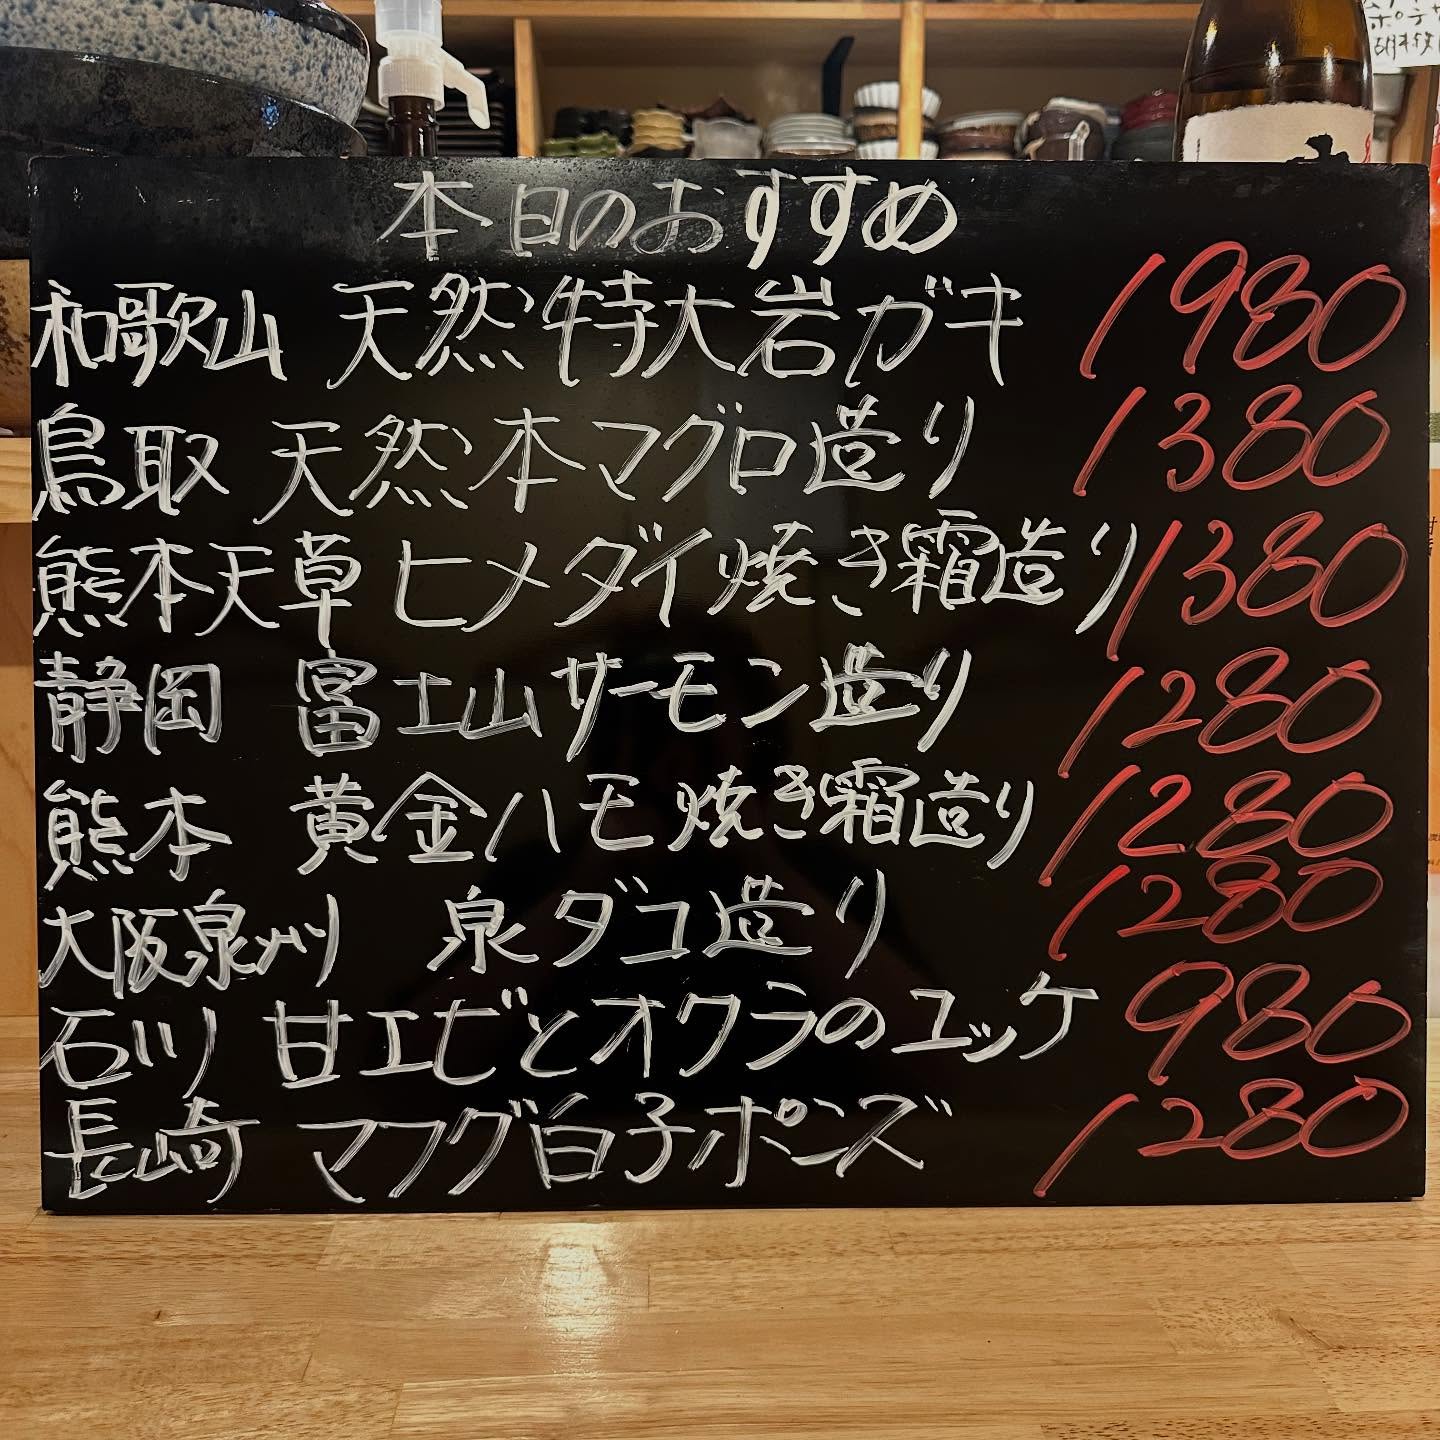 本日のおすすめ
和歌山 天然特大岩ガキ 1980
鳥取 天然本マグロ造り 1380
熊本天草 ヒメダイ焼き霜造り 1380
静岡 富士山サーモン造り 1280
熊本 黄金ハモ焼き霜造り 1280
大阪泉州 泉ダコ造り 1280
石川 甘エビとオクラのユッケ 980
長崎 マフグ白子ポンズ 1280